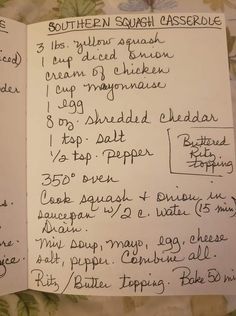 SOUTHERN SQUASH CASSEROLE
3 lbs. yellow squash
1 cup diced onion
cream of chicken
1 cup mayonnaise
1 egg
8 oz. shredded cheddar
1 tsp. salt
1/2 tsp. pepper
Buttered
Ritz
topping
350° oven
Cook squash & onion in
saucepan w/ 2 c. water (15 min)
Drain.
Mix soup, mayo, egg, cheese
salt, pepper. Combine all.
Ritz/Butter topping. Bake 50 mi